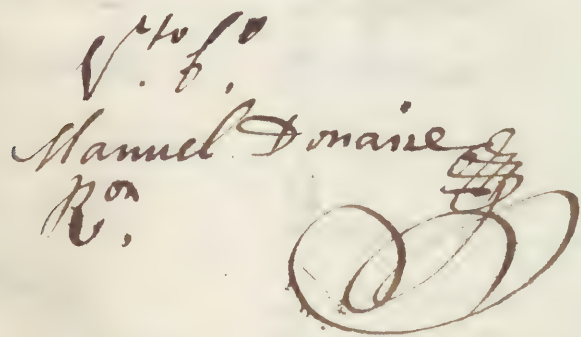 V.to b.o
Manuel Donaire
R.on